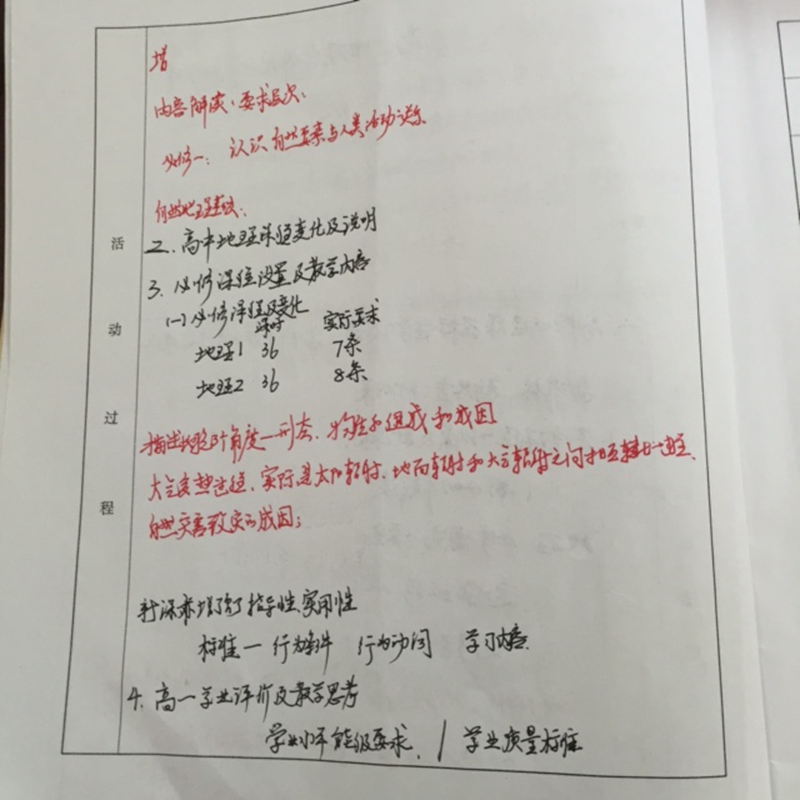 增
内容解读:要求层次:
必修一:认识自然要素与人类活动关系
自然地理
2.高中地理课程变化及说明
3.必修课程设置及教学内容
(一)必修课程及变化
课时 实际要求
地理1 36 7条
地理2 36 8条
描述地貌的角度—形态、物质组成和成因
大气受热过程,实际是太阳辐射、地面辐射和大气辐射之间相互转化过程.
自然灾害致灾的成因;
新课标增强了指导性、实用性
标准— 行为条件 行为动词 学习内容
4.高一学业评价及教学思考
学业水平能级要求. / 学业质量标准
活动过程